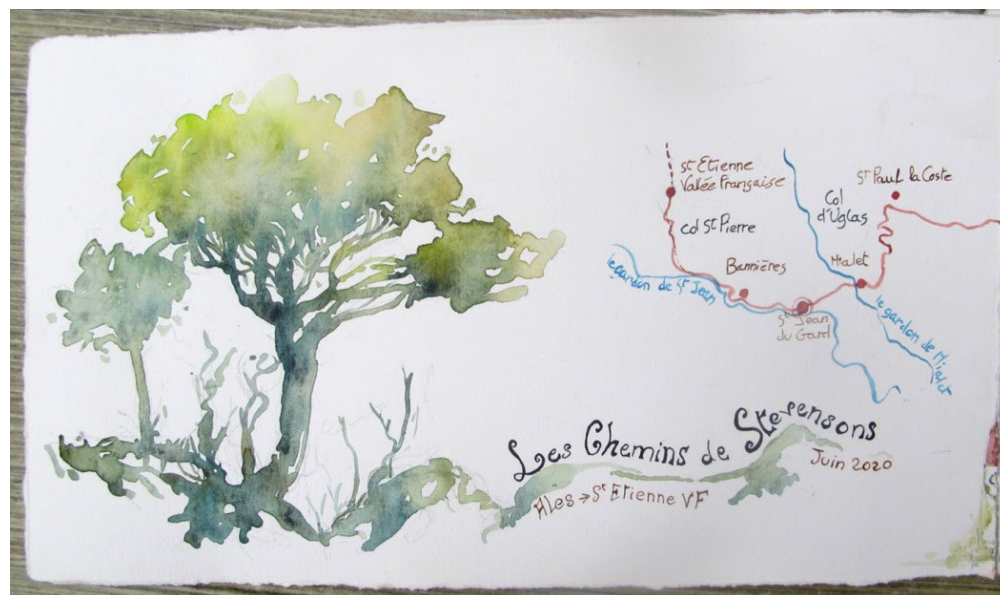 St Etienne
Vallée Française
St Paul la Coste
Col
d'Uglas
col St Pierre
Bannières
Mialet
le gardon de St Jean
St Jean
du Gard
le gardon de Mialet
Les Chemins de Stevensons
Juin 2020
Ales → St Etienne VF